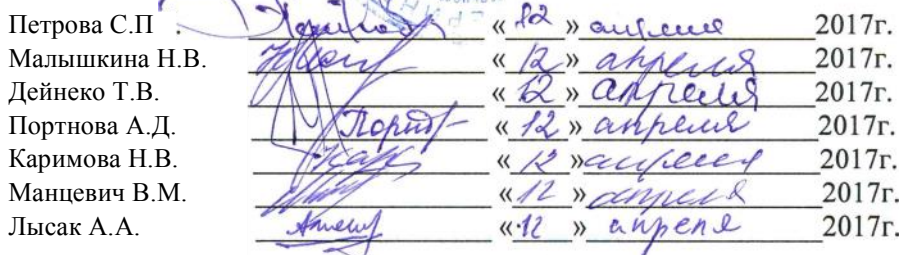 Петрова С.П. «12» апреля 2017г.
Малышкина Н.В. «12» апреля 2017г.
Дейнеко Т.В. «12» апреля 2017г.
Портнова А.Д. «12» апреля 2017г.
Каримова Н.В. «12» апреля 2017г.
Манцевич В.М. «12» апреля 2017г.
Лысак А.А. «12» апреля 2017г.